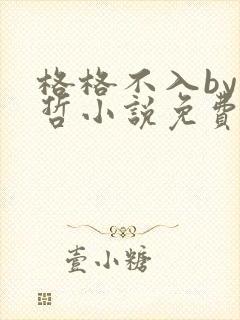 格格不入by
哲小說免費
壹小糖